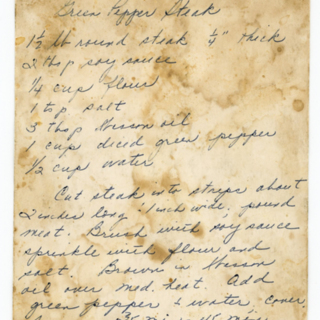 Green Pepper Steak
1½ lb round steak ¼" thick
2 tbsp soy sauce
¼ cup flour
1 tsp salt
3 tbsp Wesson oil
1 cup diced green pepper
½ cup water
Cut steak into strips about
2 inches long 1 inch wide. pound
meat. Brush with soy sauce
sprinkle with flour and
salt. Brown in Wesson
oil over med. heat. Add
green pepper & water cover